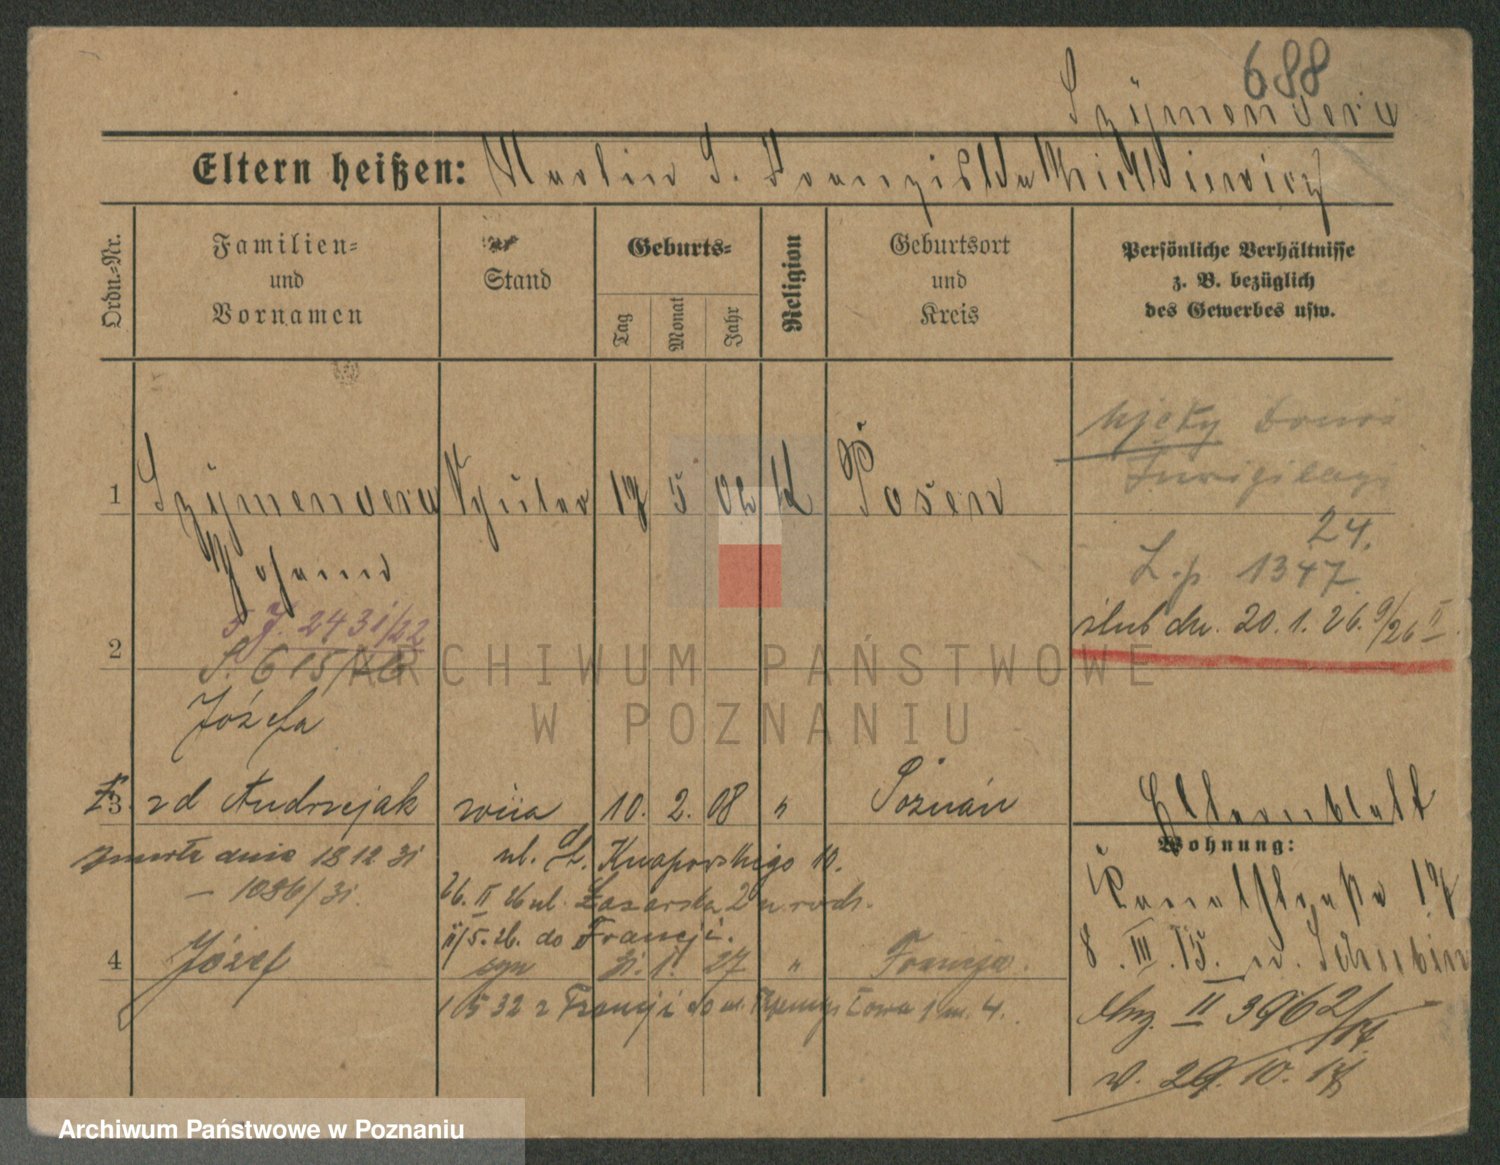 688
Szÿmendera
Eltern heißen: Martin u. Franziska Mickiewicz
Ordn.-Nr.
Familien-
und
Vornamen
Stand
Geburts-
Tag
Monat
Jahr
Religion
Geburtsort
und
Kreis
Persönliche Verhältnisse
z. B. bezüglich
des Gewerbes usw.
1 Szÿmendera Schüler 17 5 02 K Posen
Johann
24.
L.p. 1347
ślub dn. 20.1.26. 9/26 II.
5 J. 2431/22
2
S. 615/26
Józefa
Ż. 3 zd Andrzejak żona 10. 2. 08 " Poznań
Elternblatt
Wohnung:
zmarła dnia 18 12 31
– 1086/31.
ul. Knapowskiego 10.
26. II 26 ul. Łazarska 2 u rodz.
11/5.26. do Francji.
4 Józef syn 31. 1. 27 " Francja.
1 5 32 z Francji do ul. 1 m. 4.
Kanalstraße 17
8. III. 15. n. Schubin
Abg. II 3962/17
v. 29. 10. 17
ARCHIWUM PAŃSTWOWE
W POZNANIU
Archiwum Państwowe w Poznaniu